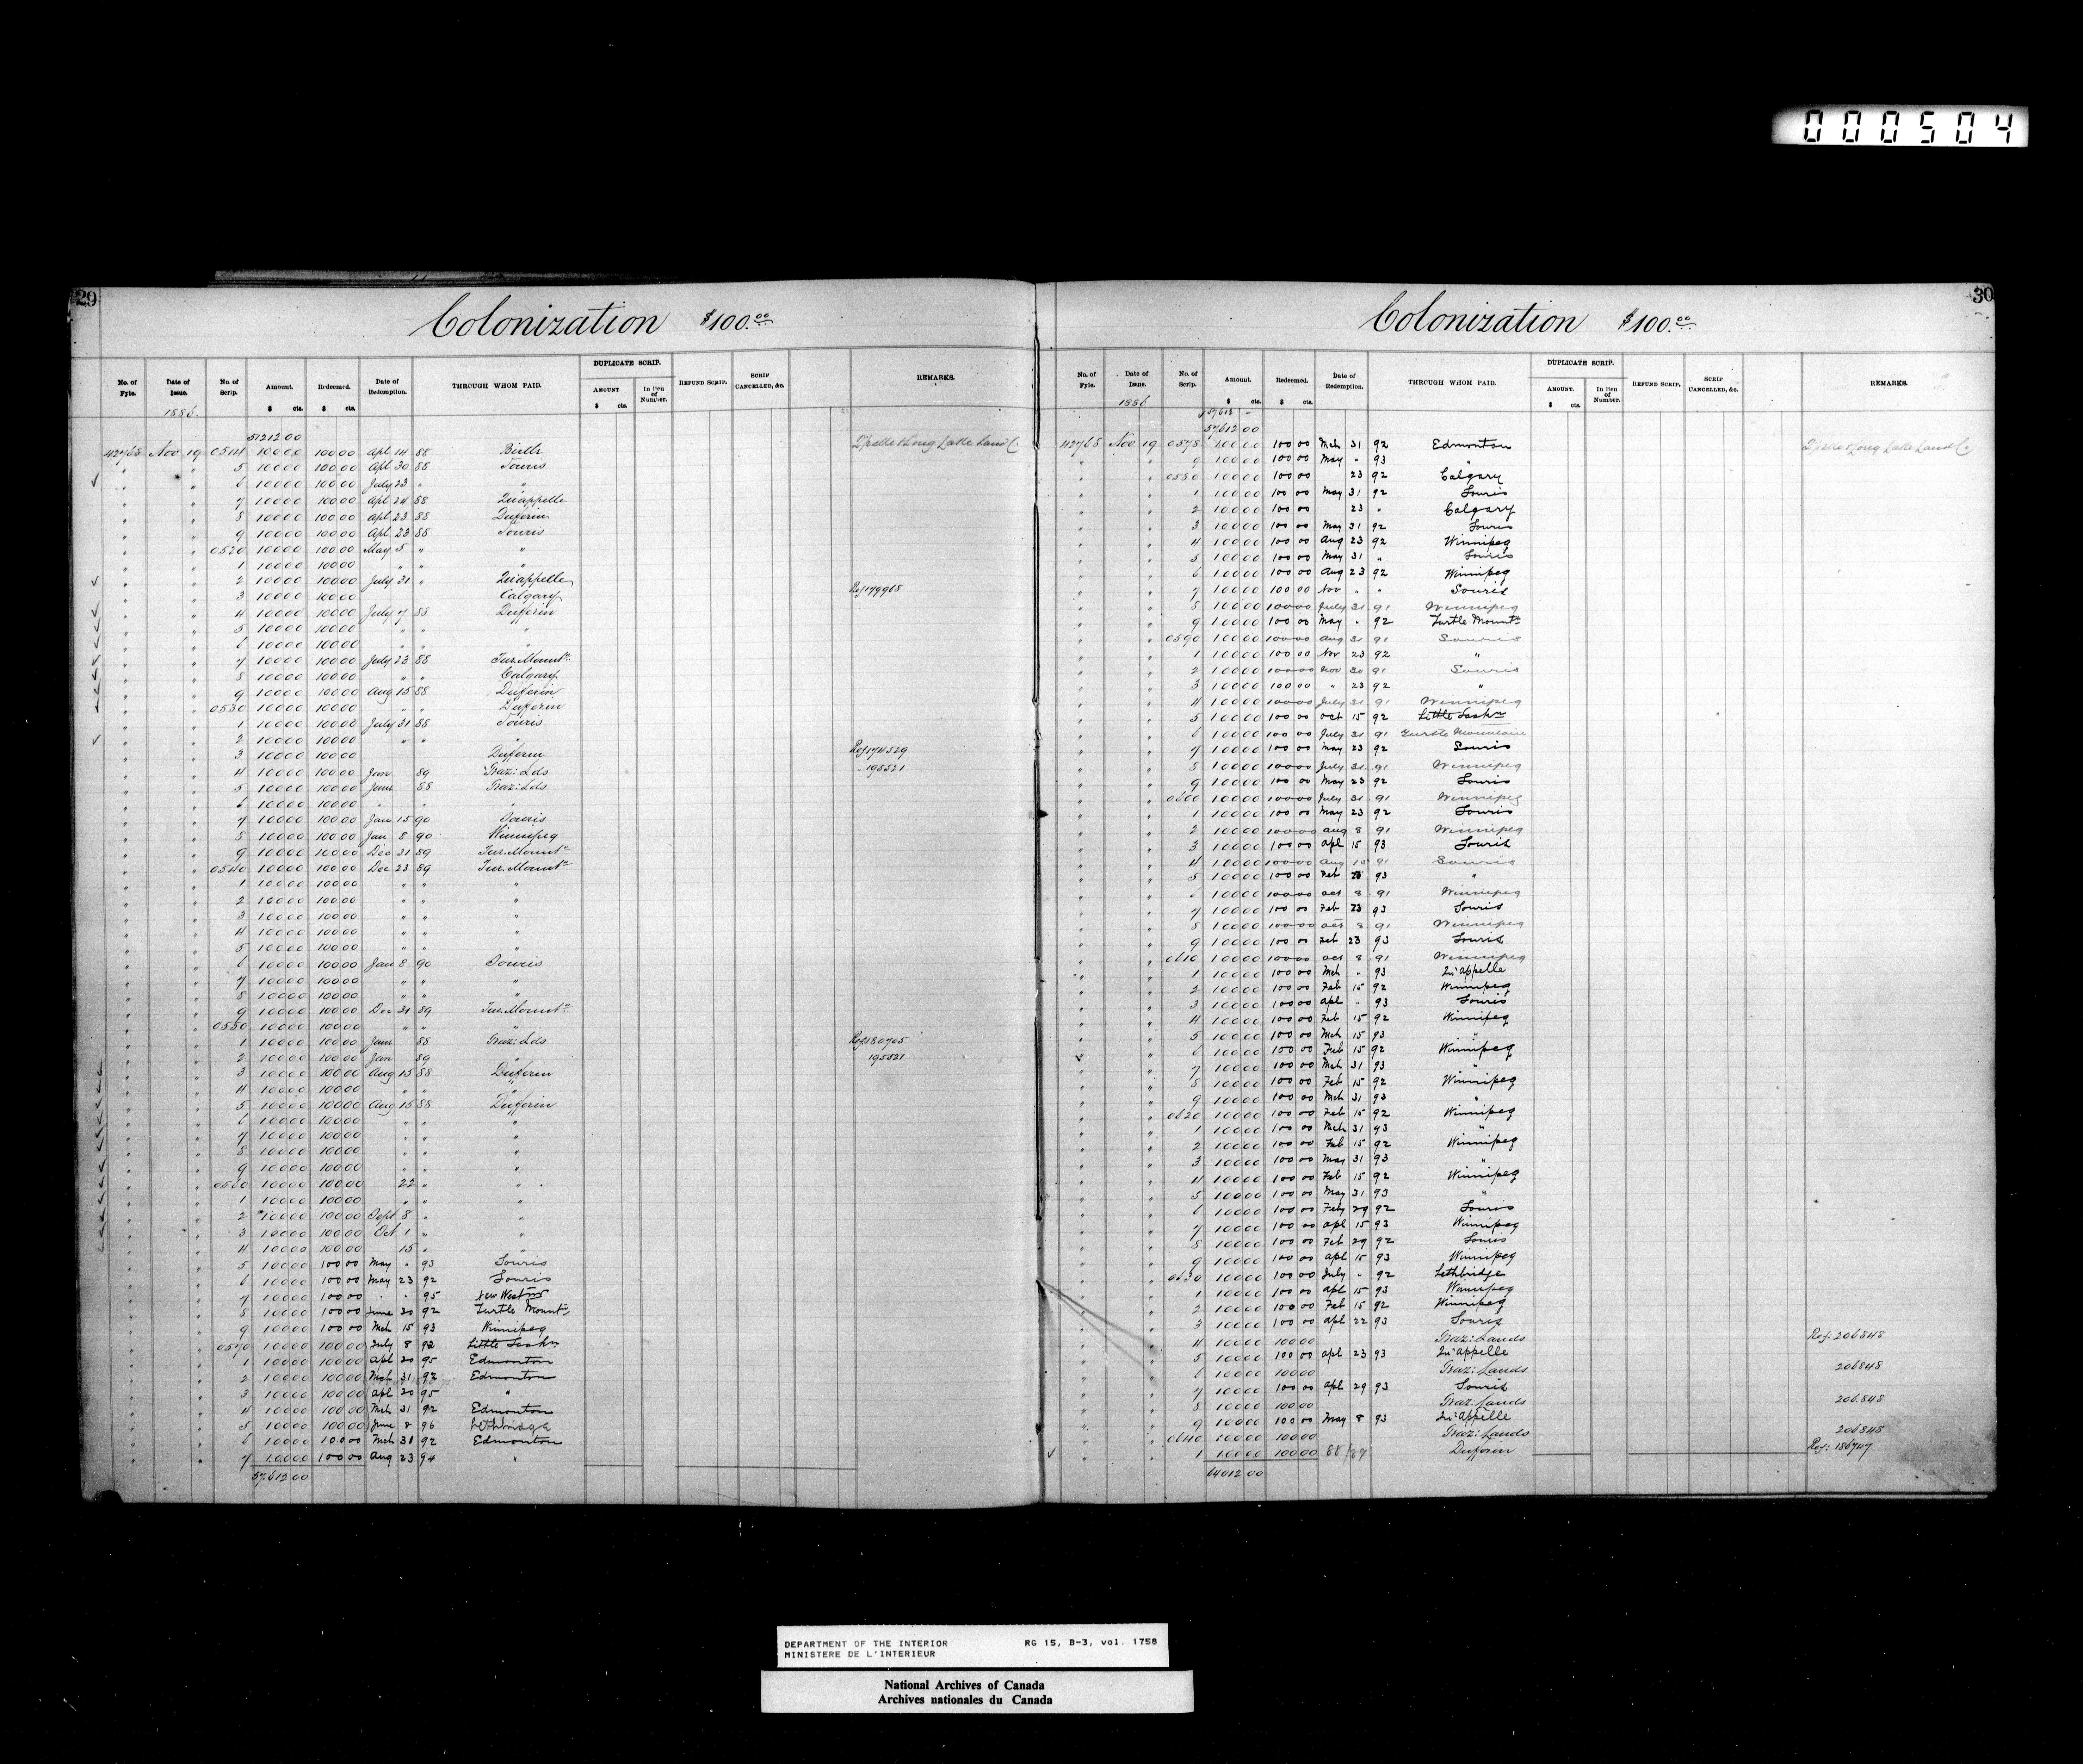 000504
29
Colonization $100.00
No. of Fyle. Date of Issue. No. of Scrip. Amount. Redeemed. Date of Redemption. THROUGH WHOM PAID. DUPLICATE SCRIP. AMOUNT. In lieu of Number. REFUND SCRIP. SCRIP CANCELLED, &c. REMARKS.
$ cts. $ cts. $ cts.
1886.
51212 00
42765 Nov 19 0514 10000 10000 Apl 14 88 Birtle
" " 5 10000 10000 Apl 30 88 Souris
" " 6 10000 10000 July 23 " "
" " 7 10000 10000 Apl 24 88 Qu'appelle
" " 8 10000 10000 Apl 23 88 Dufferin
" " 9 10000 10000 Apl 23 88 Souris
" " 0520 10000 10000 May 5 " "
" " 1 10000 10000 " " "
" " 2 10000 10000 July 31 " Qu'appelle
" " 3 10000 10000 Calgary Ref 179968
" " 4 10000 10000 July 7 88 Dufferin
" " 5 10000 10000 " " "
" " 6 10000 10000 " " "
" " 7 10000 10000 July 23 88 Tur. Mountn
" " 8 10000 10000 " " Calgary
" " 9 10000 10000 Aug 15 88 Dufferin
" " 0530 10000 10000 " " Dufferin
" " 1 10000 10000 July 31 88 Souris
" " 2 10000 10000 " " "
" " 3 10000 10000 Dufferin Ref 174529
" " 4 10000 10000 Jan 89 Graz: Lds " 195521
" " 5 10000 10000 June 88 Graz: Lds
" " 6 10000 10000 " " "
" " 7 10000 10000 Jan 15 90 Souris
" " 8 10000 10000 Jan 8 90 Winnipeg
" " 9 10000 10000 Dec 31 89 Tur. Mountn
" " 0540 10000 10000 Dec 23 89 Tur. Mountn
" " 1 10000 10000 " " "
" " 2 10000 10000 " " "
" " 3 10000 10000 " " "
" " 4 10000 10000 " " "
" " 5 10000 10000 " " "
" " 6 10000 10000 Jan 8 90 Souris
" " 7 10000 10000 " " "
" " 8 10000 10000 " " "
" " 9 10000 10000 Dec 31 89 Tur. Mountn
" " 0550 10000 10000 " " "
" " 1 10000 10000 June 88 Graz: Lds Ref 180705
" " 2 10000 10000 Jan 89 " 195521
" " 3 10000 10000 Aug 15 88 Dufferin
" " 4 10000 10000 " " "
" " 5 10000 10000 Aug 15 88 Dufferin
" " 6 10000 10000 " " "
" " 7 10000 10000 " " "
" " 8 10000 10000 " " "
" " 9 10000 10000 " " "
" " 0560 10000 10000 22 " "
" " 1 10000 10000 " " "
" " 2 10000 10000 Sept 8 " "
" " 3 10000 10000 Oct 1 " "
" " 4 10000 10000 15 " "
" " 5 10000 10000 May " 93 Souris
" " 6 10000 10000 May 23 92 Souris
" " 7 10000 10000 " " 95 New Westmr
" " 8 10000 10000 June 20 92 Turtle Mountn
" " 9 10000 10000 Mch 15 93 Winnipeg
" " 0570 10000 10000 July 8 92 Little Saskn
" " 1 10000 10000 Apl 20 95 Edmonton
" " 2 10000 10000 Mch 31 92 Edmonton
" " 3 10000 10000 Apl 20 95 "
" " 4 10000 10000 Mch 31 92 Edmonton
" " 5 10000 10000 June 8 96 Lethbridge
" " 6 10000 10000 Mch 31 92 Edmonton
" " 7 10000 10000 Aug 23 94 "
57612 00
30
Colonization $100.00
No. of Fyle. Date of Issue. No. of Scrip. Amount. Redeemed. Date of Redemption. THROUGH WHOM PAID. DUPLICATE SCRIP. AMOUNT. In lieu of Number. REFUND SCRIP. SCRIP CANCELLED, &c. REMARKS.
$ cts. $ cts. $ cts.
1886
57612 00
42765 Nov 19 0578 10000 10000 Mch 31 92 Edmonton
" " 9 10000 10000 May " 93 "
" " 0580 10000 10000 23 92 Calgary
" " 1 10000 10000 May 31 92 Souris
" " 2 10000 10000 23 " Calgary
" " 3 10000 10000 May 31 92 Souris
" " 4 10000 10000 Aug 23 92 Winnipeg
" " 5 10000 10000 May 31 " Souris
" " 6 10000 10000 Aug 23 92 Winnipeg
" " 7 10000 10000 Nov " " Souris
" " 8 10000 10000 July 31 91 Winnipeg
" " 9 10000 10000 May " 92 Turtle Mountn
" " 0590 10000 10000 Aug 31 91 Souris
" " 1 10000 10000 Nov 23 92 "
" " 2 10000 10000 Nov 30 91 Souris
" " 3 10000 10000 " 23 92 "
" " 4 10000 10000 July 31 91 Winnipeg
" " 5 10000 10000 Oct 15 92 Little Saskn
" " 6 10000 10000 July 31 91 Turtle Mountain
" " 7 10000 10000 May 23 92 Souris
" " 8 10000 10000 July 31 91 Winnipeg
" " 9 10000 10000 May 23 92 Souris
" " 0600 10000 10000 July 31 91 Winnipeg
" " 1 10000 10000 May 23 92 Souris
" " 2 10000 10000 Aug 8 91 Winnipeg
" " 3 10000 10000 Apl 15 93 Souris
" " 4 10000 10000 Aug 15 91 Souris
" " 5 10000 10000 Feb 23 93 "
" " 6 10000 10000 Oct 8 91 Winnipeg
" " 7 10000 10000 Feb 23 93 Souris
" " 8 10000 10000 Oct 8 91 Winnipeg
" " 9 10000 10000 Feb 23 93 Souris
" " 0610 10000 10000 Oct 8 91 Winnipeg
" " 1 10000 10000 Mch " 93 Qu'appelle
" " 2 10000 10000 Feb 15 92 Winnipeg
" " 3 10000 10000 Apl " 93 Souris
" " 4 10000 10000 Feb 15 92 Winnipeg
" " 5 10000 10000 Mch 15 93 "
" " 6 10000 10000 Feb 15 92 Winnipeg
" " 7 10000 10000 Mch 31 93 "
" " 8 10000 10000 Feb 15 92 Winnipeg
" " 9 10000 10000 Mch 31 93 "
" " 0620 10000 10000 Feb 15 92 Winnipeg
" " 1 10000 10000 Mch 31 93 "
" " 2 10000 10000 Feb 15 92 Winnipeg
" " 3 10000 10000 May 31 93 "
" " 4 10000 10000 Feb 15 92 Winnipeg
" " 5 10000 10000 May 31 93 "
" " 6 10000 10000 Feby 29 92 Souris
" " 7 10000 10000 Apl 15 93 Winnipeg
" " 8 10000 10000 Feb 29 92 Souris
" " 9 10000 10000 Apl 15 93 Winnipeg
" " 0630 10000 10000 July " 92 Lethbridge
" " 1 10000 10000 Apl 15 93 Winnipeg
" " 2 10000 10000 Feb 15 92 Winnipeg
" " 3 10000 10000 Apl 22 93 Souris
" " 4 10000 10000 Graz: Lands Ref: 206848
" " 5 10000 10000 Apl 23 93 Qu'appelle
" " 6 10000 10000 Graz: Lands 206848
" " 7 10000 10000 Apl 29 93 Souris
" " 8 10000 10000 Graz: Lands 206848
" " 9 10000 10000 May 8 93 Qu'appelle
" " 0640 10000 10000 Graz: Lands 206848
" " 1 10000 10000 88/89 Dufferin Ref: 186747
64012 00
DEPARTMENT OF THE INTERIOR RG 15, B-3, vol. 1758
MINISTERE DE L'INTERIEUR
National Archives of Canada
Archives nationales du Canada